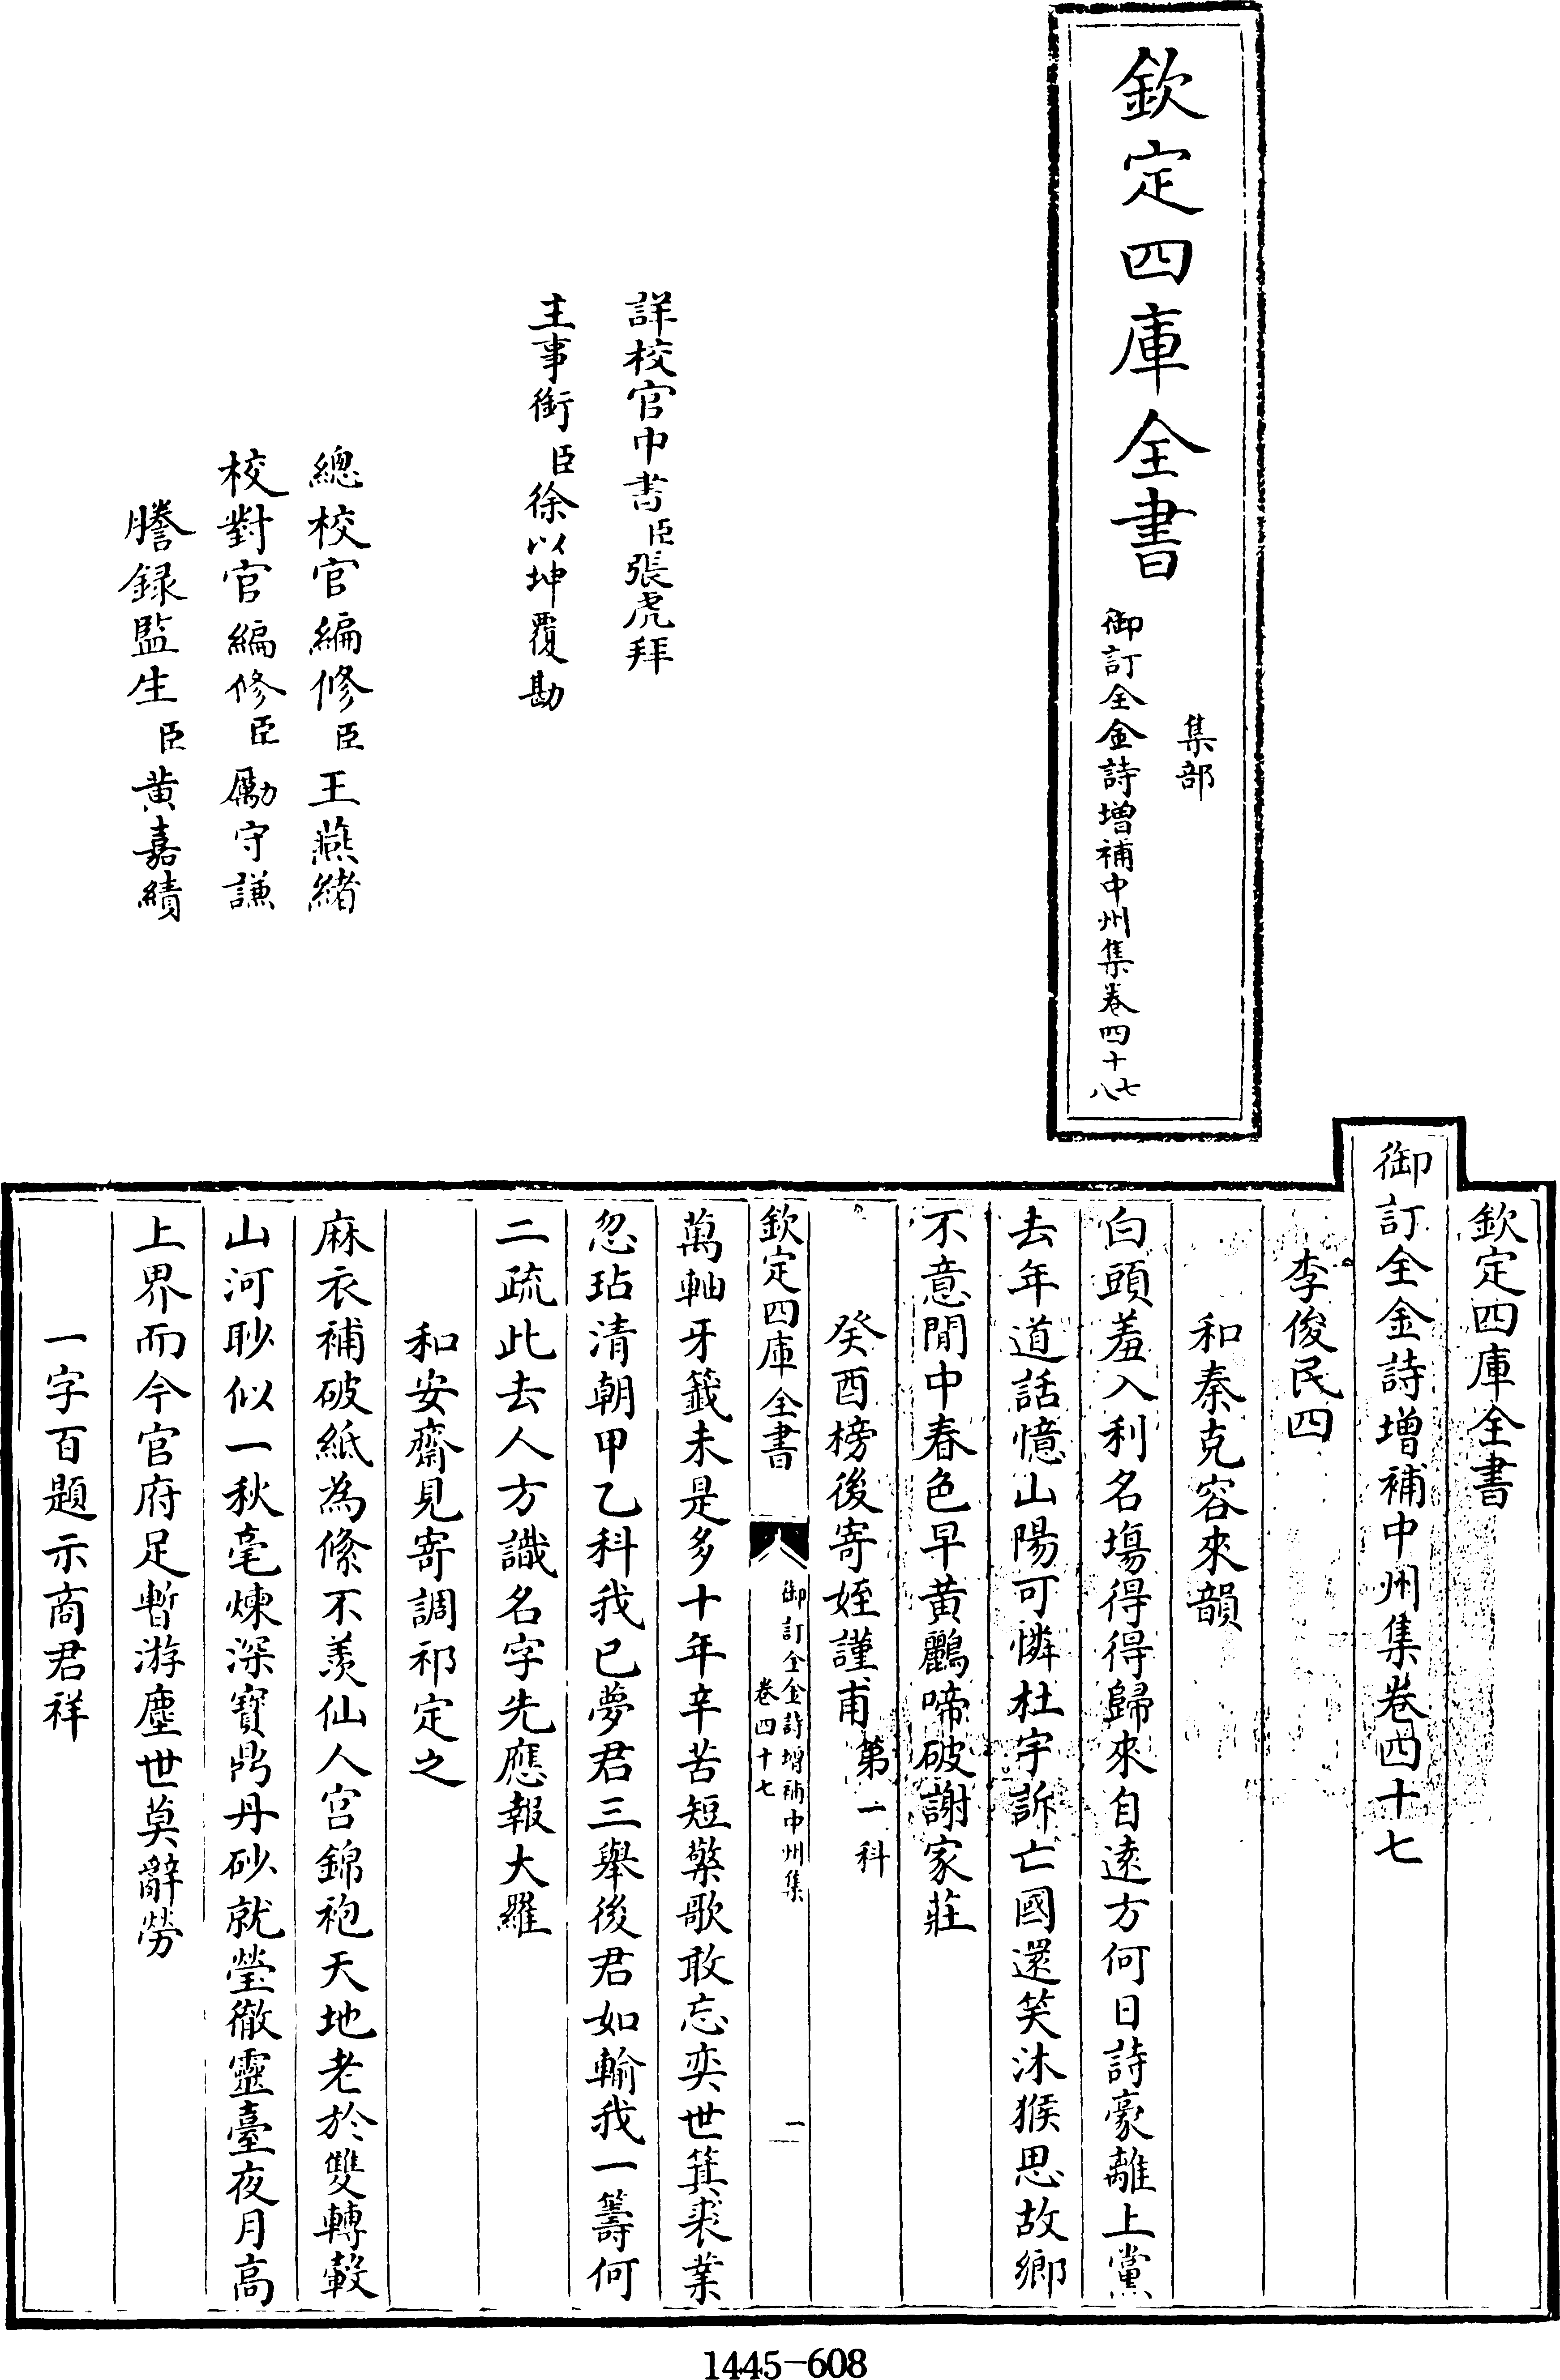 欽定四庫全書
集部
御訂全金詩增補中州集卷四十七八
詳校官中書臣張虎拜
主事銜臣徐以坤覆勘
總校官編修臣王燕緒
校對官編修臣勵守謙
謄録監生臣黄嘉績
欽定四庫全書
御訂全金詩增補中州集卷四十七
李俊民四
和秦克容來韻
白頭羞入利名塲得得歸來自逺方何日詩豪離上黨
去年道話憶山陽可憐杜宇訴亡國還笑沐猴思故鄉
不意閒中春色早黄鸝啼破謝家莊
癸酉榜後寄姪謹甫第一科
欽定四庫全書
御訂全金詩增補中州集
卷四十七
一
萬軸牙籤未是多十年辛苦短檠歌敢忘奕世箕裘業
忽玷清朝甲乙科我已夢君三舉後君如輸我一籌何
二疏此去人方識名字先應報大羅
和安齋見寄調祁定之
麻衣補破紙為絛不羨仙人宫錦袍天地老於雙轉轂
山河眇似一秋毫煉深寳鼎丹砂就瑩徹靈臺夜月高
上界而今官府足暫游塵世莫辭勞
一字百題示商君祥
1445-608